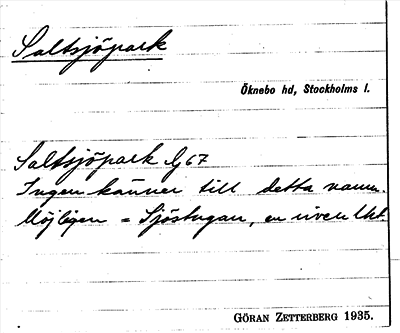 Saltsjöpark
Öknebo hd, Stockholms l.
Saltsjöpark lj 67
Ingen känner till detta namn.
Möjligen = Sjöstugan, en riven lht.
GÖRAN ZETTERBERG 1935.